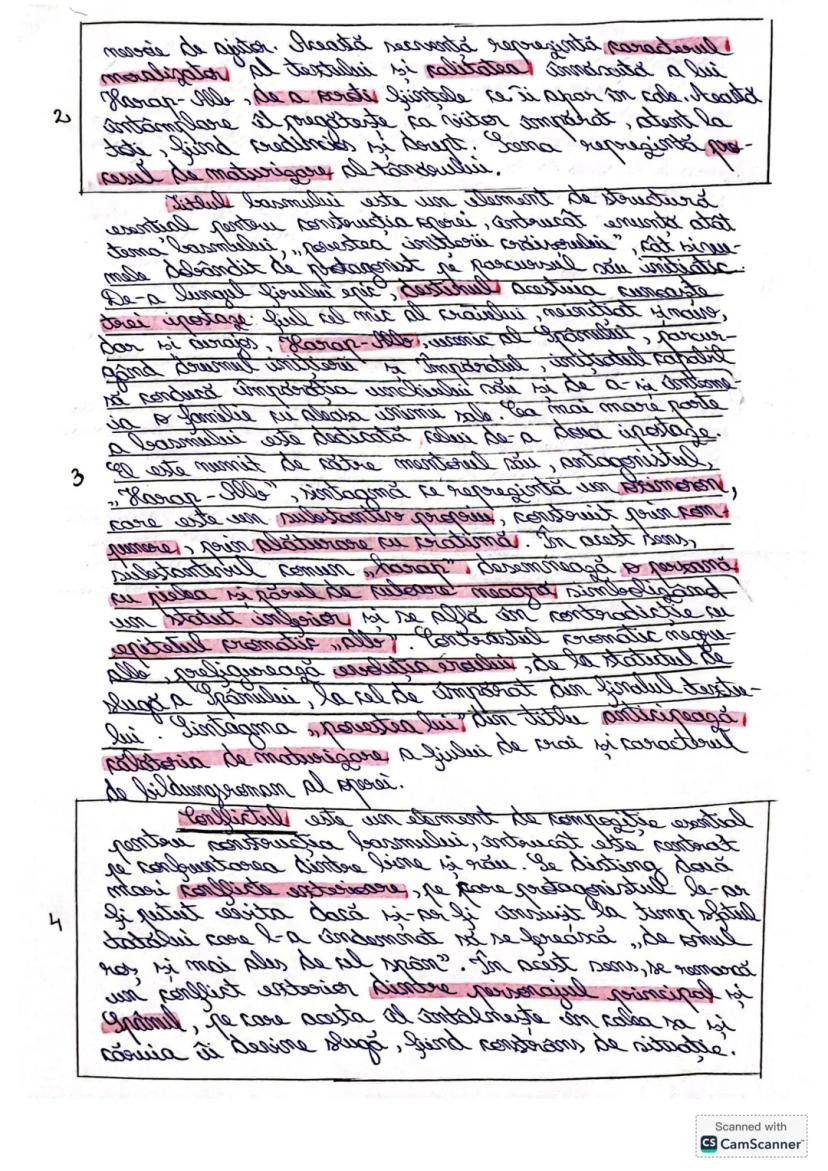 nevoie de ajutor. Această secvență reprezintă caracterul
moralizator al textului și calitatea înnăscută a lui
Harap-Alb, de a ocroti ființele ce îi apar în cale. Această
întâmplare îl pregătește ca viitor împărat, atent la
toți, fiind credincios și drept. Scena reprezintă pro-
cesul de maturizare al tânărului.
2
Titlul basmului este un element de structură
esențial pentru construcția operei, întrucât enunță atât
tema basmului, „povestea inițierii crăișorului”, cât și nu-
mele dobândit de protagonist pe parcursul său inițiatic.
De-a lungul firului epic, destinul acestuia cunoaște
trei ipostaze: fiul cel mic al craiului, neinițiat și naiv,
dar și curajos, Harap-Alb, ucenic al Spânului, parcur-
gând drumul inițierii și Împăratul, inițiatul capabil
să conducă împărăția unchiului său și de a-și înteme-
ia o familie cu aleasa inimii sale. Cea mai mare parte
a basmului este dedicată celui de-a doua ipostaze.
3
El este numit de către mentorul său, antagonistul,
„Harap-Alb”, sintagmă ce reprezintă un oximoron,
care este un substantiv propriu, construit prin com-
punere, prin alăturare cu cratimă. În acest sens,
substantivul comun „harap” desemnează o persoană
cu pielea și părul de culoare neagră simbolizând
un statut inferior și se află în contradicție cu
epitetul cromatic „alb”. Contrastul cromatic negru-
alb, prefigurează evoluția eroului, de la statutul de
slugă a Spânului, la cel de împărat din finalul textu-
lui. Sintagma „povestea lui” din titlu anticipează
călătoria de maturizare a fiului de crai și caracterul
de bildungsroman al operei.
Conflictul este un element de compoziție esențial
pentru construcția basmului, întrucât este centrat
pe confruntarea dintre bine și rău. Se disting două
mari conflicte exterioare, pe care protagonistul le-ar
fi putut evita dacă și-ar fi însușit la timp sfatul
4
tatălui care l-a îndemnat să se ferească „de omul
roș, și mai ales de cel spân”. În acest sens, se remarcă
un conflict exterior dintre personajul principal și
Spânul, pe care acesta îl întâlnește în calea sa și
căruia îi devine slugă, fiind constrâns de situație.
Scanned with
CS CamScanner